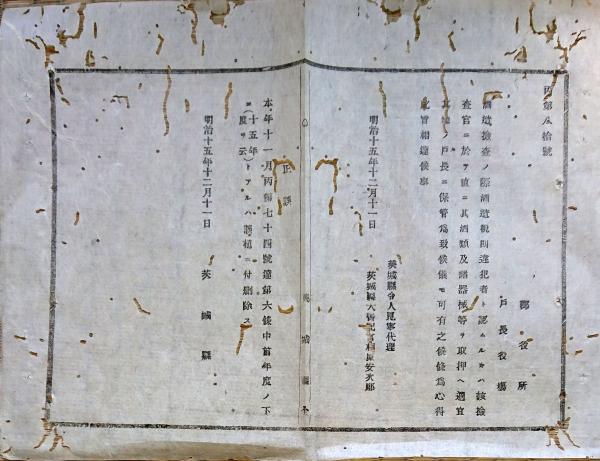 丙第八拾號
郡役所
戸長役場
酒造檢査ノ際酒造規則違犯者ト認ムルトキハ該檢
査官ニ於テ直ニ其酒類及諸器械等ヲ取押ヘ適宜
其地ノ戸長ニ保管爲致候儀モ可有之候條爲心得
此旨相達候事
明治十五年十二月十一日
茨城縣令人見寧代理
茨城縣大書記官 安次郎
茨城縣
正誤
本年十一月丙第七十四號達第六條中前年度ノ下
(十五年度ヲ云)トアルハ誤植ニ付削除ス
明治十五年十二月十一日
茨城縣